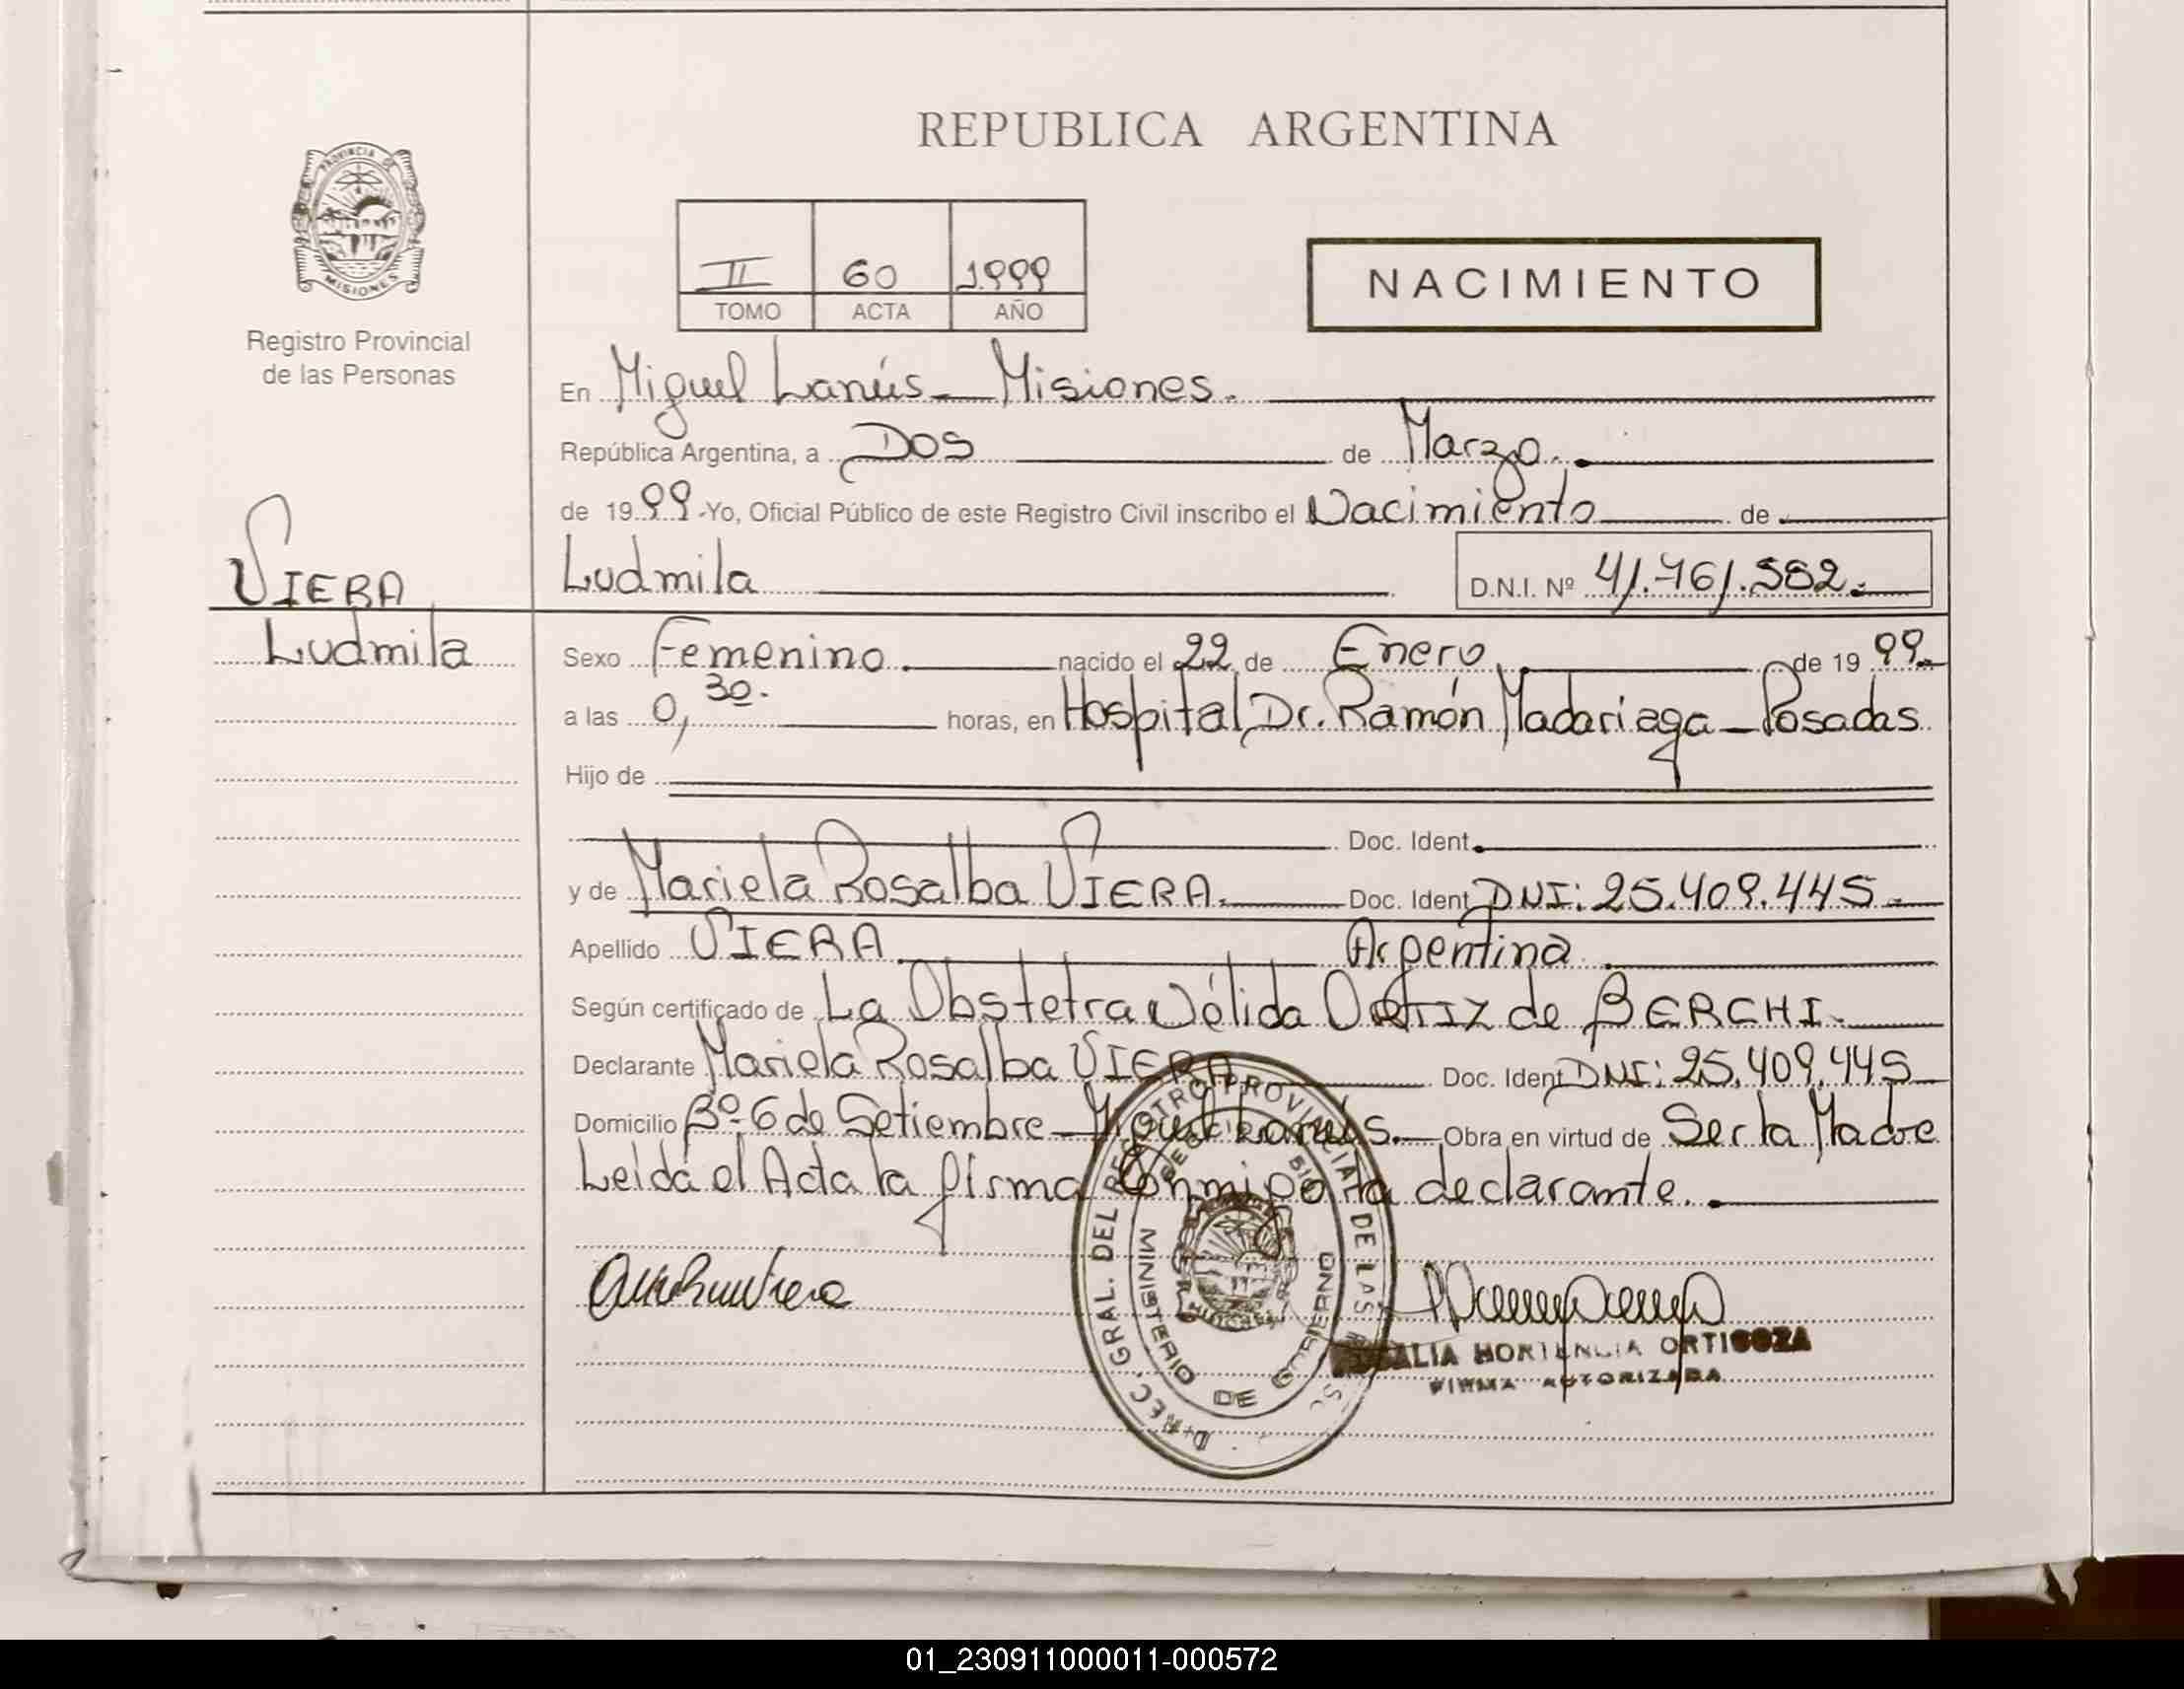 REPUBLICA ARGENTINA
PROVINCIA DE
MISIONES
Registro Provincial
de las Personas
II 60 1.999
TOMO ACTA AÑO
NACIMIENTO
En Miguel Lanús - Misiones.
República Argentina, a Dos de Marzo.
de 1999 -Yo, Oficial Público de este Registro Civil inscribo el Nacimiento de
VIERA
Ludmila
Ludmila D.N.I. Nº 41.761.582.
Sexo Femenino. nacido el 22 de Enero. de 1999.
a las 0,30. horas, en Hospital Dr. Ramón Madariaga - Posadas
Hijo de
Doc. Ident.
y de Mariela Rosalba VIERA. Doc. Ident. DNI: 25.409.445.
Apellido VIERA. Argentina.
Según certificado de La Obstetra Nélida ORTIZ de BERCHI.
Declarante Mariela Rosalba VIERA Doc. Ident. DNI: 25.409.445
Domicilio Bº 6 de Setiembre - Miguel Lanús. - Obra en virtud de Ser la Madre
Leída el Acta la firma Conmigo la declarante.
GRAL. DEL REGISTRO PROVINCIAL DE LAS
MINISTERIO DE GOBIERNO
HORTENCIA ORTIGOZA
FIRMA AUTORIZADA
01_230911000011-000572